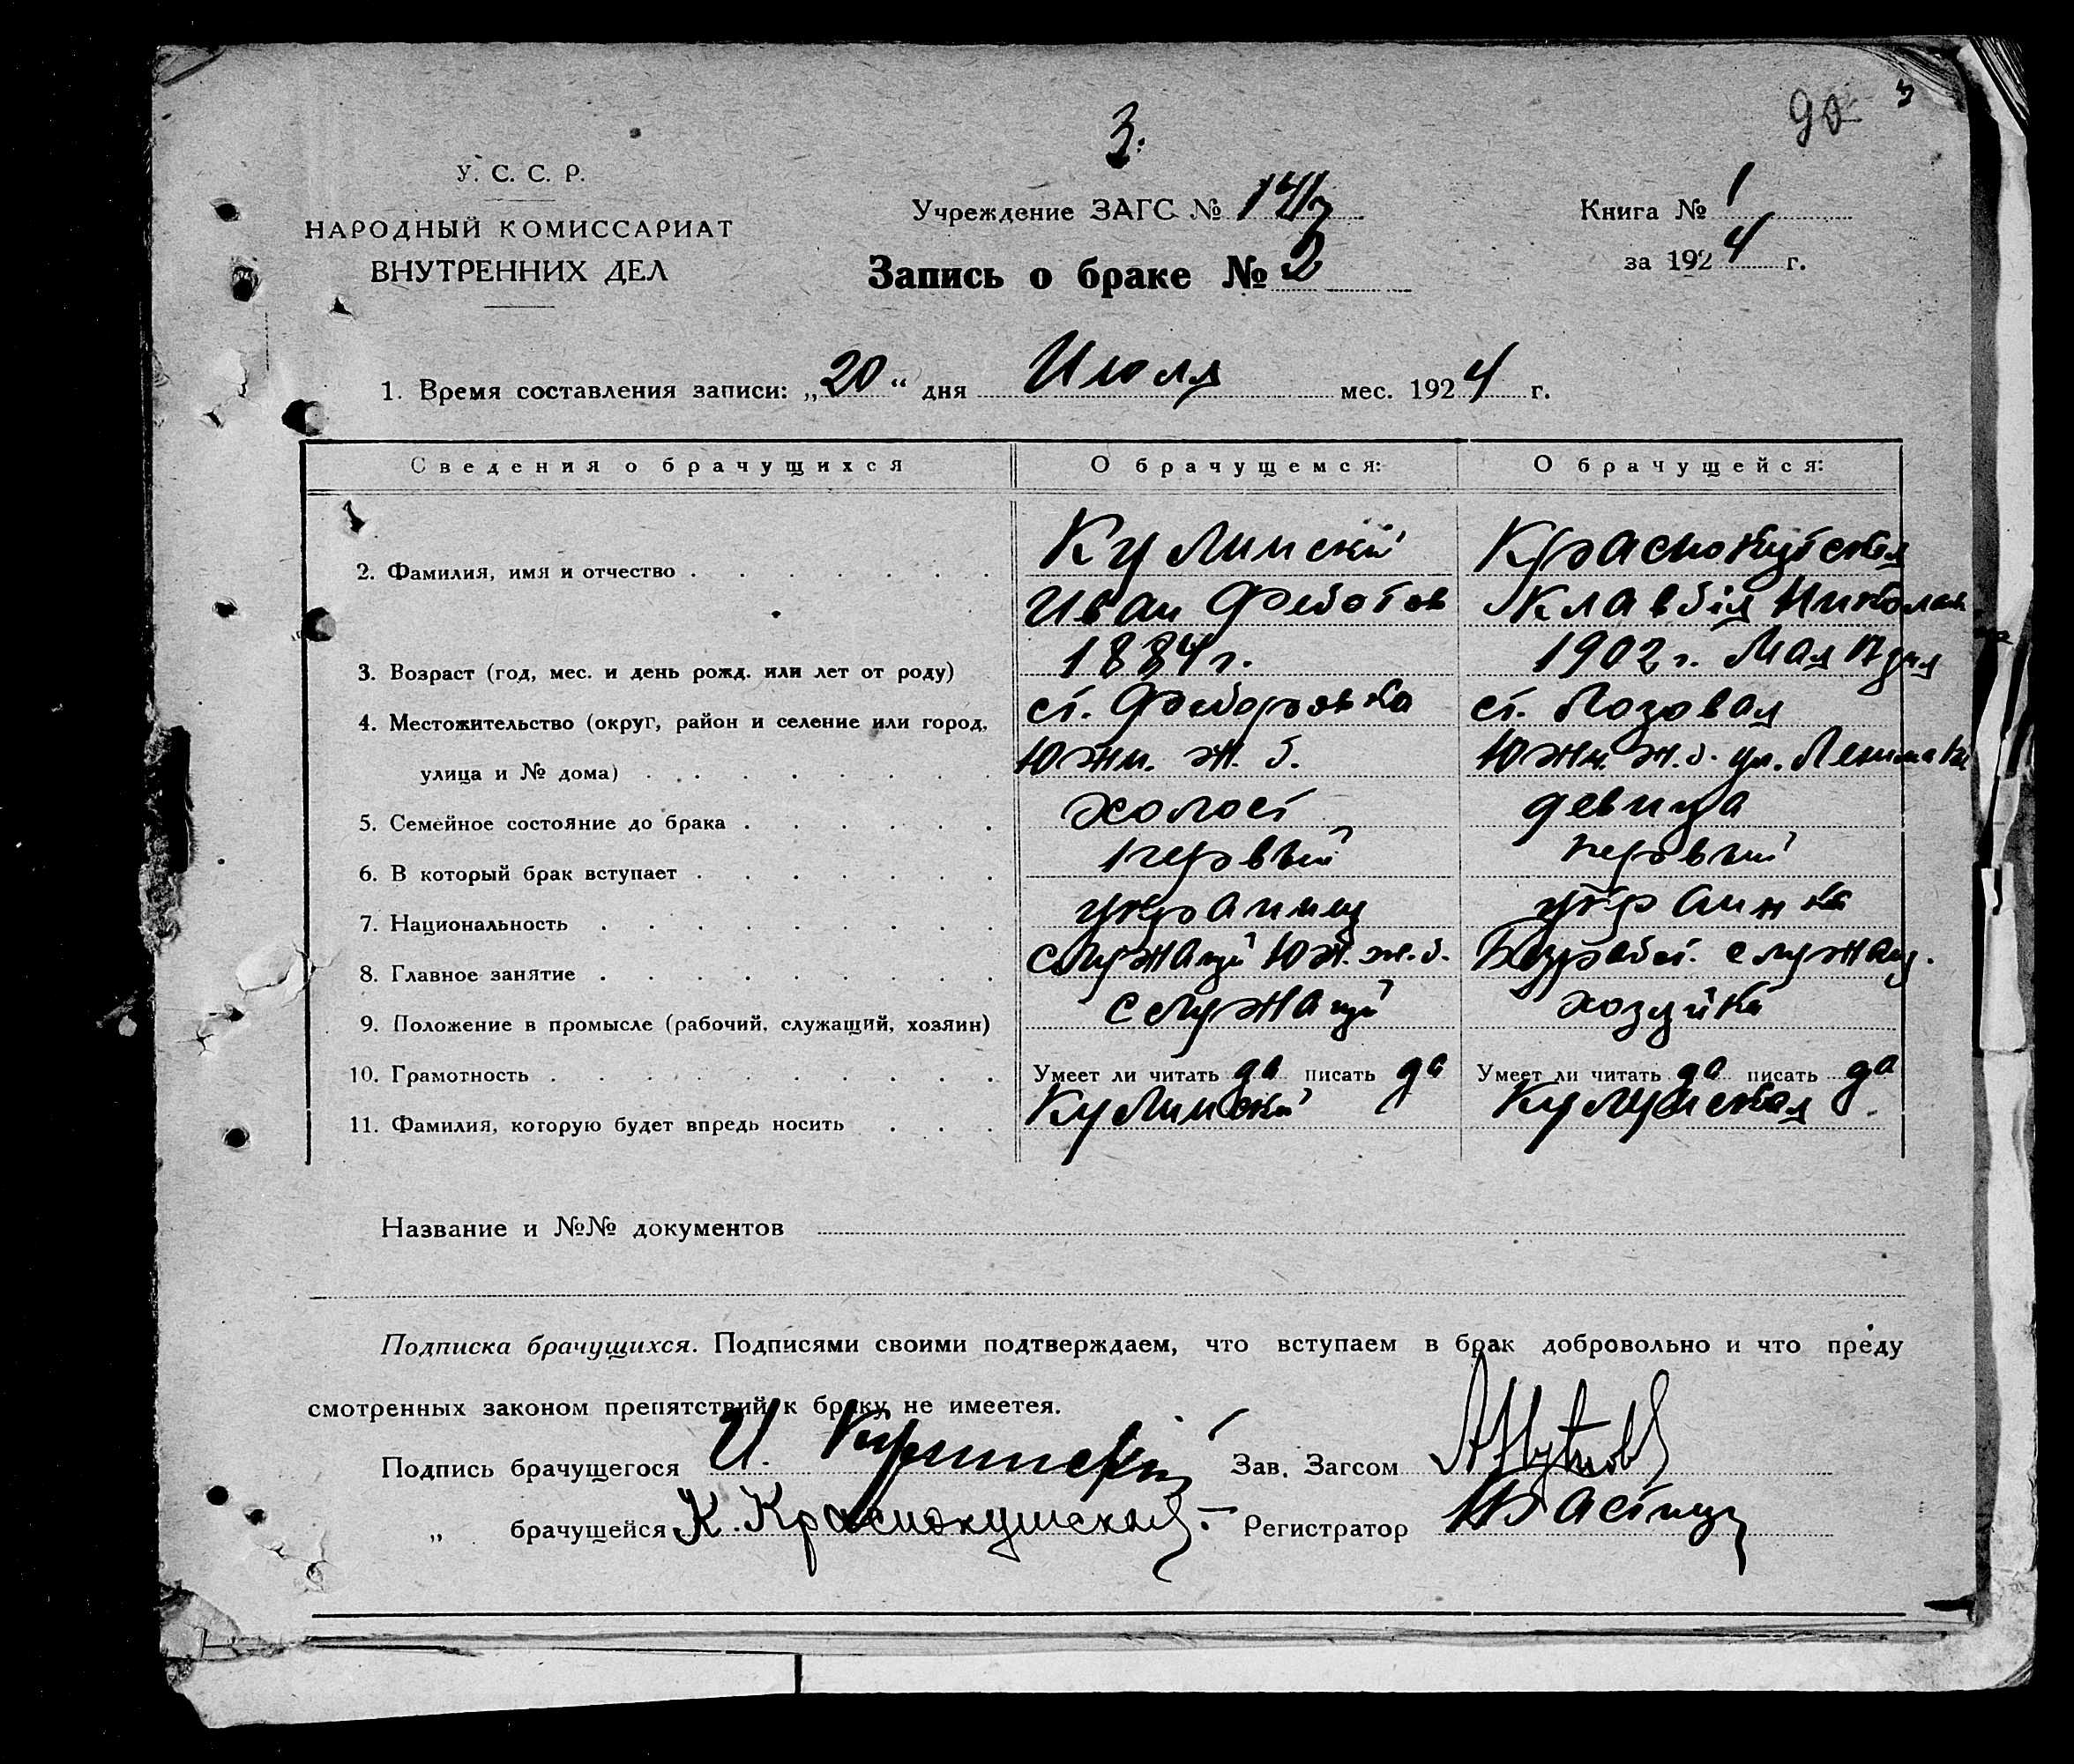 90 3
3.
У. С. С. Р.
НАРОДНЫЙ КОМИССАРИАТ
ВНУТРЕННИХ ДЕЛ
Учреждение ЗАГС №
Книга № 1
за 1924 г.
Запись о браке № 2
1. Время составления записи: „20“ дня Июля мес. 1924 г.
Сведения о брачущихся О брачущемся: О брачущейся:
2. Фамилия, имя и отчество Кулинский Краснокутская
Иван Федотов Клавдия Николаев
3. Возраст (год, мес. и день рожд. или лет от роду) 1884 г. 1902 г. Мая дня
4. Местожительство (округ, район и селение или город, ст. Федоровка ст. Лозовая
улица и № дома) Южн. ж. д. Южн. ж. д. ул. Ленина
5. Семейное состояние до брака холост девица
6. В который брак вступает первый первый
7. Национальность украинец украинка
8. Главное занятие служащий Юж. ж. д. Безработ. служащ.
9. Положение в промысле (рабочий, служащий, хозяин) служащий хозяйка
10. Грамотность Умеет ли читать да писать да Умеет ли читать да писать да
11. Фамилия, которую будет впредь носить Кулинский Кулинская
Название и №№ документов
Подписка брачущихся. Подписями своими подтверждаем, что вступаем в брак добровольно и что преду
смотренных законом препятствий к браку не имеетея.
Подпись брачущегося И. Зав. Загсом
„ брачущейся К. Краснокутская Регистратор